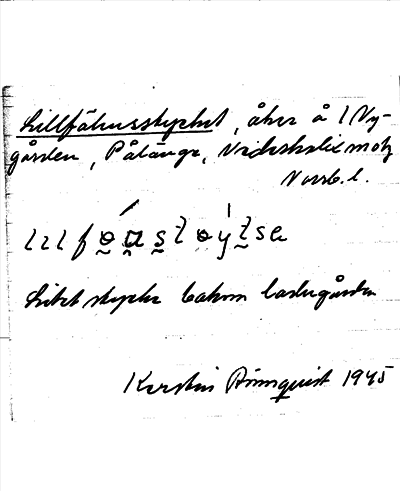 Lillfähusstycket, åker å 1 Ny-
gården, Pålänge, Nederkalix
Norrb. l.
Litet stycke bakom ladugården
Kerstin Rönnquist 1945